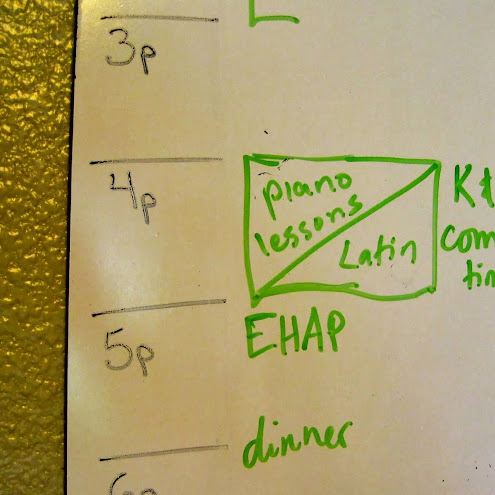 3p
4p
piano
lessons
Latin
K
com
tin
5p
EHAP
dinner